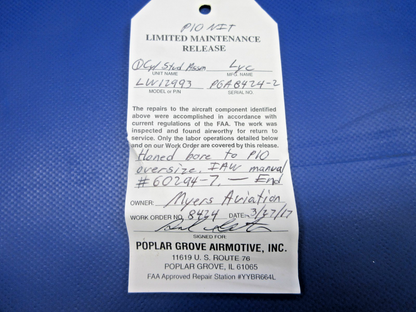 P10 NIT
LIMITED MAINTENANCE
RELEASE
① Cyl Stud Assm Lyc
UNIT NAME MFG. NAME
LW12993 PGA8424-2
MODEL or P/N SERIAL NO.
The repairs to the aircraft component identified
above were accomplished in accordance with
current regulations of the FAA. The work was
inspected and found airworthy for return to
service. Only the labor operations detailed below
and on our Work Order are covered by this release.
Honed bore to P10
oversize. IAW manual
#60294-7. — End
OWNER: Myers Aviation
WORK ORDER NO. 8424 DATE 3/27/17
SIGNED FOR
POPLAR GROVE AIRMOTIVE, INC.
11619 U. S. ROUTE 76
POPLAR GROVE, IL 61065
FAA Approved Repair Station #YYBR664L